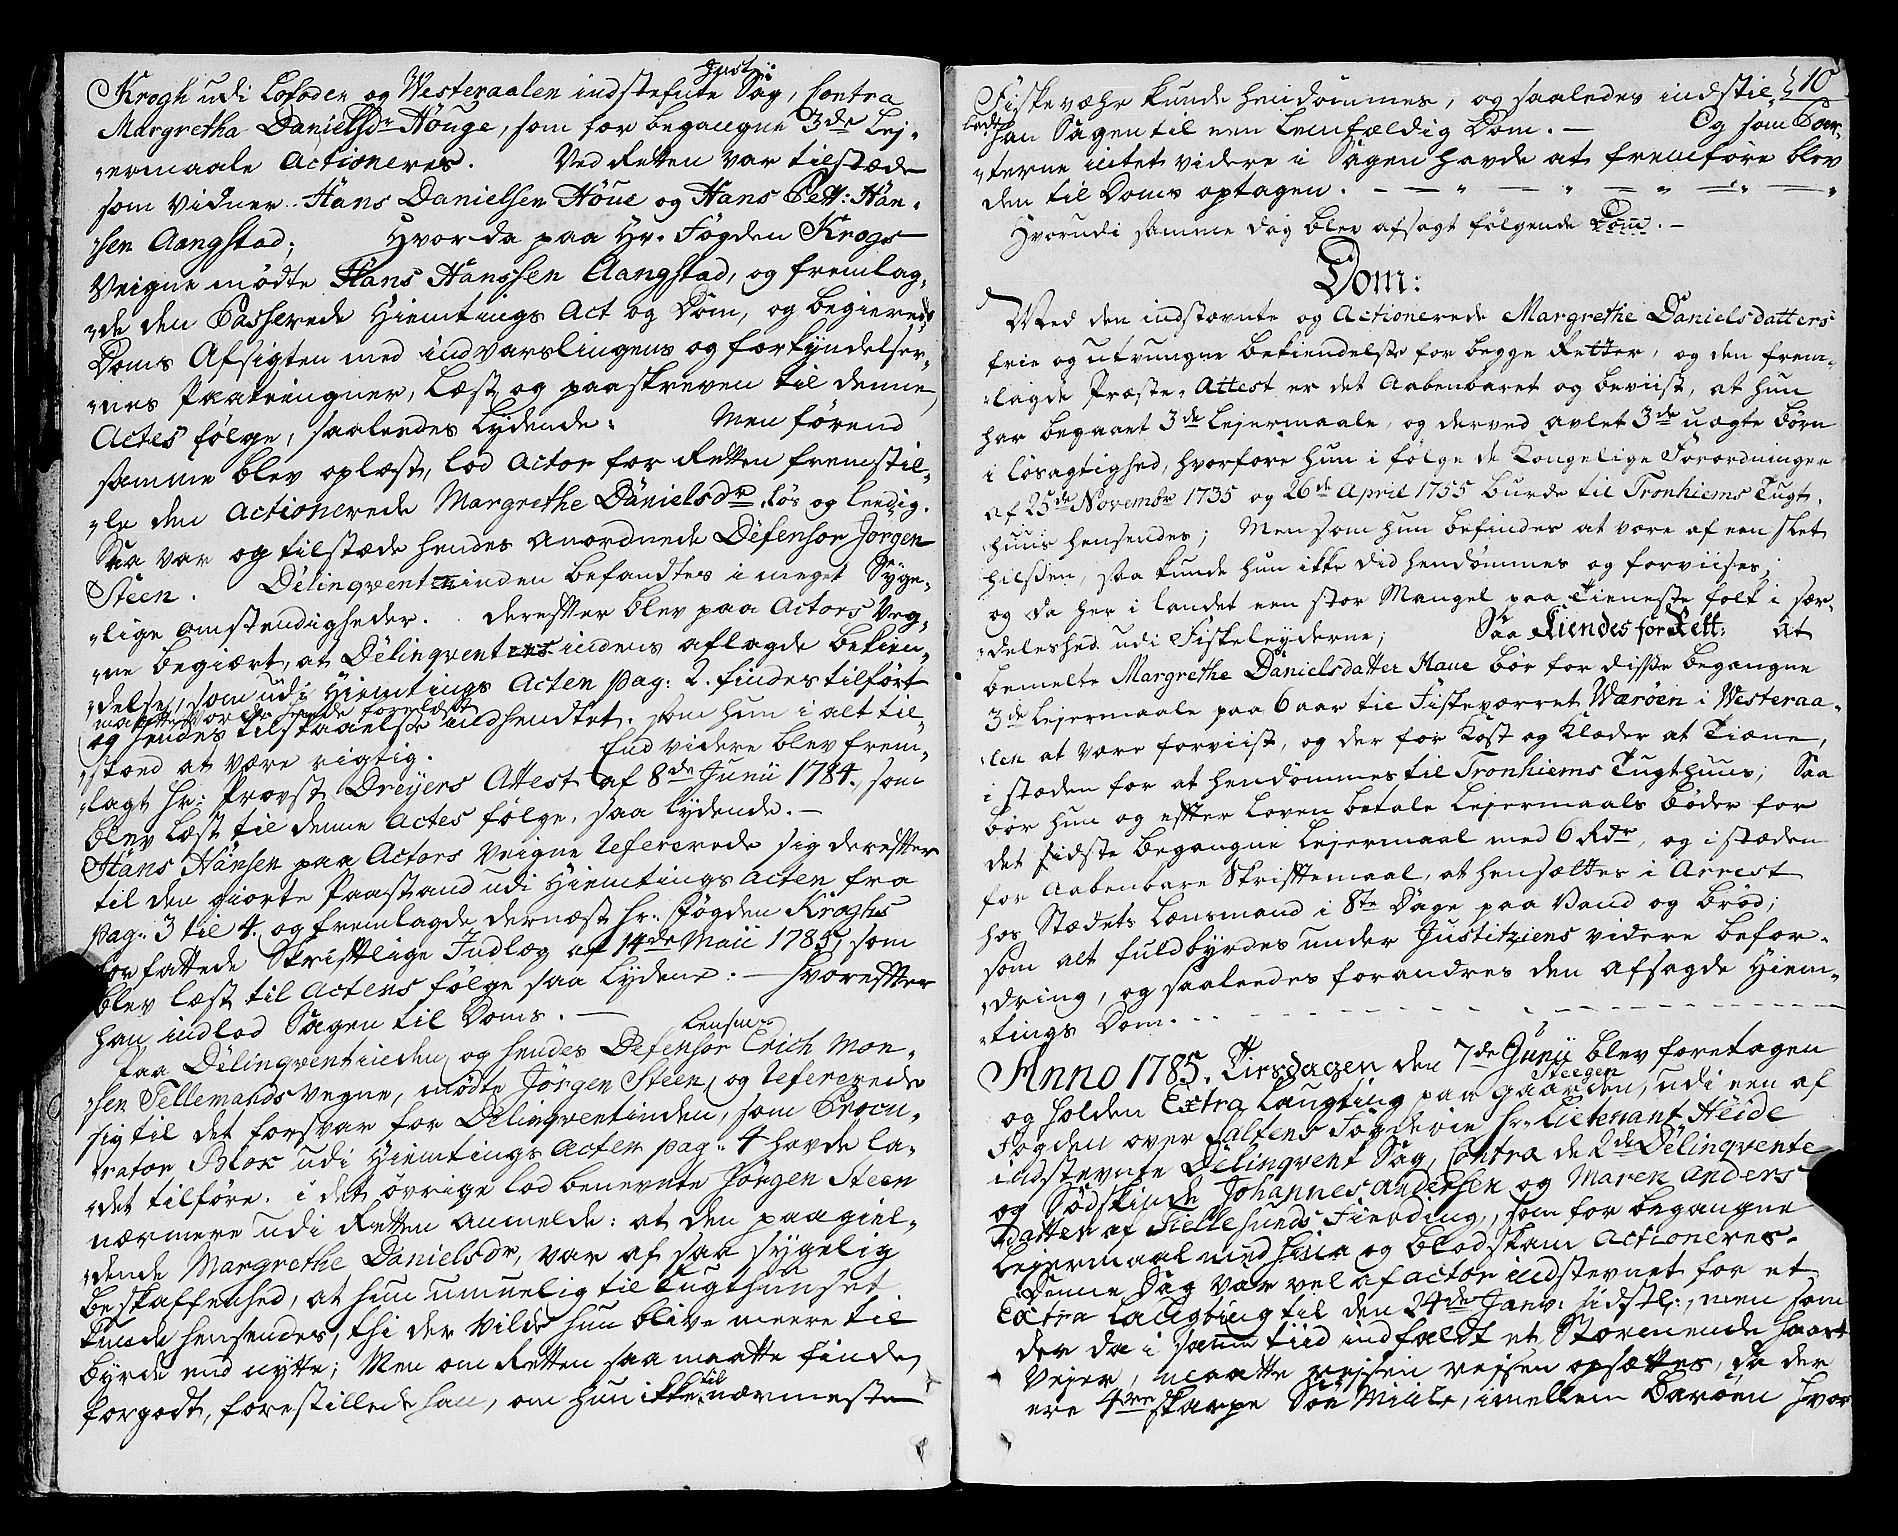 Just:
Krogh udi Lofoden og Westeraalen indstefnte Sag, Contra
Margretha Danielsdr Höuge, som for begangne 3de Lej¬
ermaale Actioneres. Ved Retten var tilstæde
som Vidner Hans Danielsen Höue og Hans Pett: Han¬
sen Aangstad; Hvorda paa Hr. Fogden Krogs
Veigne mödte Hans Hanssen Aangstad, og fremlag¬
de den Passerede Hiemtings Act og Dom, og begierede
Doms Afsigten med indvarslingens og forkyndelser¬
nes Paategninger, læst og paaskreven til denne
Actes følge, saaleedes lydende: Men förend
samme blev oplæst, lod Actor for Retten fremstil¬
le den Actionerede Margrethe Danielsdr lös og leedig.
Saa var og tilstæde hendes Anordnede Defensor Jörgen
Steen. Delinqventinden befandtes i meget Syge¬
lige omstendigheder. derefter blev paa Actors Veg¬
ne begiært, at Delinqventindens aflagde bekien¬
delse, som udi Hiemtings Acten pag: 2. findes tilfört
maatte vorde hende forelæst
og hendes tilstaaelse indhendtet. som hun i alt til¬
stoed at være rigtig. End videre blev frem¬
lagt Hr: Provst Dreyers Attest af 8de Junii 1784. som
blev læst til denne Actes følge, saa lydende.
Hans Hansen paa Actors Veigne Refererede sig derefter
til den giorte Paastand udi Hiemtings Acten fra
pag: 3 til 4. og fremlagde dernæst Hr: Fogden Kroghs
forfattede Skriftlige Indlæg af 14de Maii 1785, som
blev læst til Actens følge saa lydene: Hvorefter
han indlod Sagen til Doms.
Lensm:
Paa Delinqventinden og hendes Defensor Erich Mon¬
sen Tellemands vegne, mödte Jörgen Steen, og Refererede
sig til det forsvar for Delinqventinden, som Procu¬
rator Blox udi Hiemtings Acten pag: 4 havde la¬
det tilföre. i det øvrige lod benevnte Jörgen Steen
nærmere udi Retten Anmelde: at den paagiel¬
dende Margrethe Danielsdr, var af saa sygelig
beskaffenhed, at hun umuelig til Tugthuuset
kunde hensendes, thi der vilde hun blive meere til
byrde end nytte; Men om Retten saa maatte finde
forgodt, forestillede han, om hun ikke til nærmeste
510
Fiskevæhr kunde hendømmes, og saaledes indstil¬
ledt han Sagen til een lemfældig Dom. Og som Par¬
terne intet videre i Sagen havde at fremföre blev
den til Doms optagen.
Hvorudi samme dag blev afsagt følgende Dom.
Dom:
Ved den indstævnte og Actionerede Margrethe Danielsdatters
frie og utvungne bekiendelse for begge Retter, og den frem¬
lagde Præste-Attest er det Aabenbaret og beviist, at hun
har begaaet 3de Lejermaale, og derved avlet 3de uægte börn
i lösagtighed, hvorfore hun i følge de Kongelige Forordninger
af 25de Novembr 1735 og 26de April 1755 burde til Tronhiems Tugt¬
huus hensendes; Men som hun befindes at være af een slet
hilsen, saa kunde hun ikke did hendömmes og forviises;
og da her i landet een stor Mangel paa Tieneste folk i sær¬
deleshed udi Fiskeleyderne; Saa Kiendes for Rett: At
bemelte Margrethe Danielsdatter Haue bør for disse begangne
3de Lejermaale paa 6 aar til Fiskeværret Wæröen i Westeraa¬
len at være forviist, og der for Kost og Klæder at Tiene,
i stæden for at hendömmes til Tronhiems Tugthuus; Saa
bør hun og efter Loven betale Lejermaals böder for
det sidste begangne Lejermaal med 6 Rdr, og istæden
for Aabenbare Skriftemaal, at hensættes i Arrest
hos Stædets Lænsmand i 8te Dage paa Vand og Bröd;
som alt fuldbyrdes under Justitziens videre befor¬
dring, og saaleedes forandres den Afsagde Hiem¬
tings Dom.
Anno 1785. Tirsdagen den 7de Junii blev foretagen
og holden Extra Laugting paa gaarden Steegen, udi een af
Fogden over Saltens Fogderie Hr: Lieutenant Heide
indstevnte Delinqvent Sag, Contra de 2de Delinqvente
og Södskinde Johannes Andersen og Maren Anders
datter af Fiellesunds Fierding, som for begangne
Lejermaal med hina og blodskam Actioneres.
Denne Sag var vel af Actor indstevnet for et
Extra Laugting til den 24de Janv: sidstl:, men som
der da i samme tiid indfaldt et Stormende haart
Vejer, maatte rejsen opsættes, da der
ere 4re skarpe Söe Miile, imellem Daröen hvor